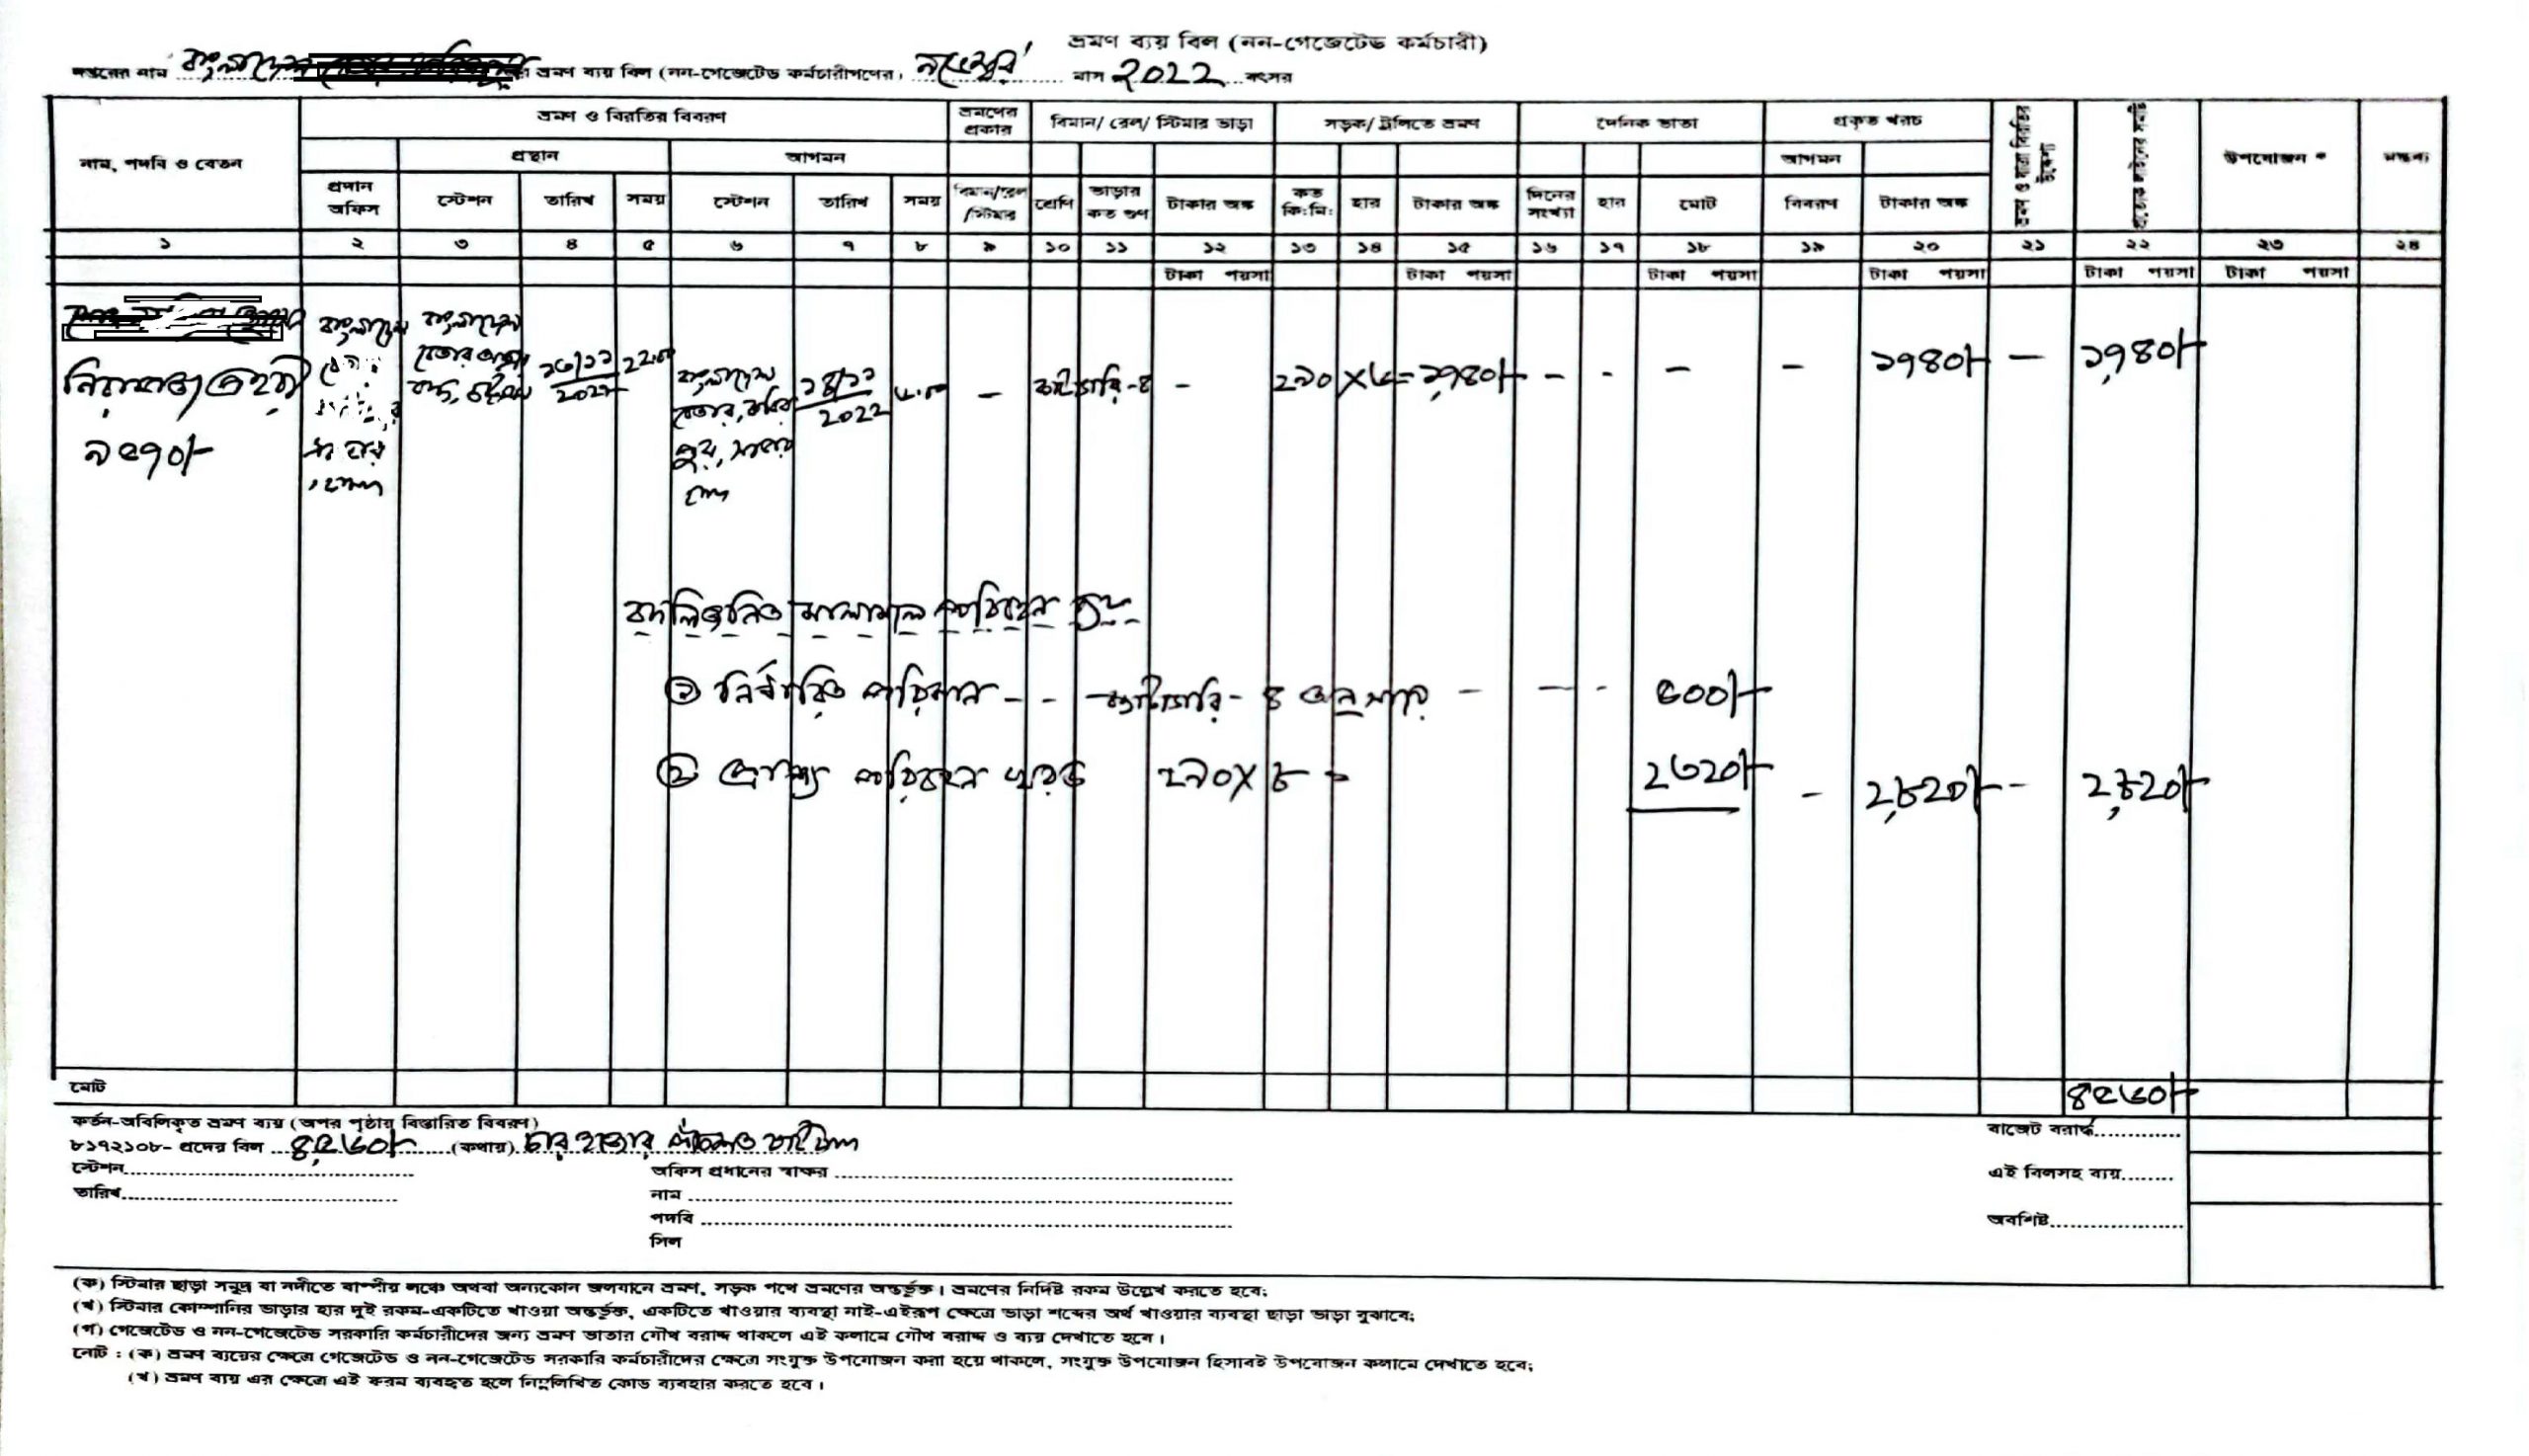 ভ্রমণ ব্যয় বিল (নন-গেজেটেড কর্মচারী)
দপ্তরের নাম বাংলাদেশ ভ্রমণ ব্যয় বিল (নন-গেজেটেড কর্মচারীগণের, নভেম্বর মাস ২০২২ বৎসর
নাম, পদবি ও বেতন
ভ্রমণ ও বিরতির বিবরণ
ভ্রমণের প্রকার
বিমান/ রেল/ স্টিমার ভাড়া
সড়ক/ ট্রলিতে ভ্রমণ
দৈনিক ভাতা
প্রকৃত খরচ
উপযোজন *
মন্তব্য
প্রস্থান
আগমন
আগমন
প্রধান অফিস
স্টেশন
তারিখ
সময়
স্টেশন
তারিখ
সময়
বিমান/রেল /স্টিমার
শ্রেণি
ভাড়ার কত গুণ
টাকার অঙ্ক
কত কি:মি:
হার
টাকার অঙ্ক
দিনের সংখ্যা
হার
মোট
বিবরণ
টাকার অঙ্ক
ভ্রমণ ও যাত্রা বিরতির উদ্দেশ্য
প্রত্যেক লাইনের সমষ্টি
১ ২ ৩ ৪ ৫ ৬ ৭ ৮ ৯ ১০ ১১ ১২ ১৩ ১৪ ১৫ ১৬ ১৭ ১৮ ১৯ ২০ ২১ ২২ ২৩ ২৪
টাকা পয়সা টাকা পয়সা টাকা পয়সা টাকা পয়সা টাকা পয়সা টাকা পয়সা
নিরাপত্তা প্রহরী
৯৫৭০/-
বাংলাদেশ
বাংলাদেশ
বেতার
১৩/১১
২০২২
বাংলাদেশ
বেতার, কবির
পুর, সাভার
১৪/১১
২০২২
–
ক্যাটাগরি-৪
–
২৯০ × ৬ = ১৭৪০/- – - – – ১৭৪০/- – ১,৭৪০/-
বদলিজনিত মালামাল পরিবহন
① নির্ধারিত পরিমান - - ক্যাটাগরি- ৪ অনুসারে – – - ৫০০/-
② প্রাপ্য পরিবহন খরচ ২৯০ × ৮ = ২৩২০/- – ২,৮২০/- – ২,৮২০/-
মোট
৪৫৬০/-
কর্তন-অবিলিকৃত ভ্রমণ ব্যয় (অপর পৃষ্ঠায় বিস্তারিত বিবরণ)
৮১৭২১০৮- প্রদের বিল ৪,৫৬০/- (কথায়) চার হাজার পাঁচশত ষাট টাকা
বাজেট বরাদ্দ
স্টেশন
অফিস প্রধানের স্বাক্ষর
এই বিলসহ ব্যয়
তারিখ
নাম
পদবি
অবশিষ্ট
সিল
(ক) স্টিমার ছাড়া সমুদ্র বা নদীতে বাষ্পীয় লঞ্চে অথবা অন্যকোন জলযানে ভ্রমণ, সড়ক পথে ভ্রমণের অন্তর্ভুক্ত। ভ্রমণের নির্দিষ্ট রকম উল্লেখ করতে হবে;
(খ) স্টিমার কোম্পানির ভাড়ার হার দুই রকম-একটিতে খাওয়া অন্তর্ভুক্ত, একটিতে খাওয়ার ব্যবস্থা নাই-এইরূপ ক্ষেত্রে ভাড়া শব্দের অর্থ খাওয়ার ব্যবস্থা ছাড়া ভাড়া বুঝাবে;
(গ) গেজেটেড ও নন-গেজেটেড সরকারি কর্মচারীদের জন্য ভ্রমণ ভাতার যৌথ বরাদ্দ থাকলে এই কলামে যৌথ বরাদ্দ ও ব্যয় দেখাতে হবে।
নোট : (ক) ভ্রমণ ব্যয়ের ক্ষেত্রে গেজেটেড ও নন-গেজেটেড সরকারি কর্মচারীদের ক্ষেত্রে সংযুক্ত উপযোজন করা হয়ে থাকলে, সংযুক্ত উপযোজন হিসাবই উপযোজন কলামে দেখাতে হবে;
(খ) ভ্রমণ ব্যয় এর ক্ষেত্রে এই ফরম ব্যবহৃত হলে নিম্নলিখিত কোড ব্যবহার করতে হবে।